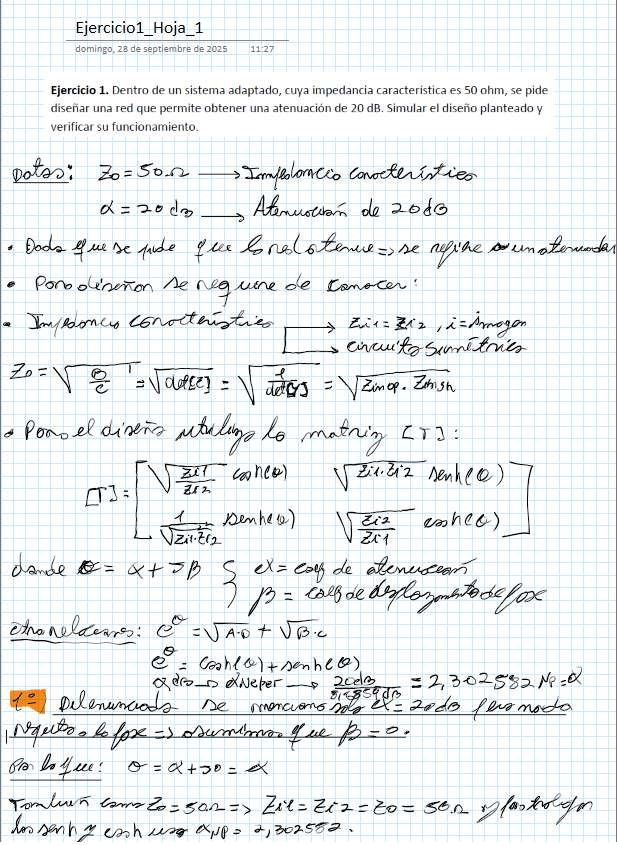 Ejercicio1_Hoja_1
domingo, 28 de septiembre de 2025 11:27
Ejercicio 1. Dentro de un sistema adaptado, cuya impedancia característica es 50 ohm, se pide
diseñar una red que permite obtener una atenuación de 20 dB. Simular el diseño planteado y
verificar su funcionamiento.
Datos: Zo = 50Ω → Impedancia característica
α = 20 dB → Atenuación de 20 dB
• Dado que se pide que la red atenue => se refiere a un atenuador
• Para diseñar se requiere de conocer:
• Impedancia característica → Zi1 = Zi2, i = imagen
→ circuito simétrico
Zo = √(B/C) = √det[Z] = √(1/det[Y]) = √(Zinop · Zinsh)
• Para el diseño utilizo la matriz [T]:
[T] = [ √(Zi1/Zi2) cosh(θ) √(Zi1·Zi2) senh(θ)
1/√(Zi1·Zi2) senh(θ) √(Zi2/Zi1) cosh(θ) ]
donde θ = α + Jβ { α = coef de atenuación
β = coef de desplazamiento de fase
otra relaciones: e^θ = √(A·D) + √(B·C)
e^θ = cosh(θ) + senh(θ)
α dB → α Neper → 20dB / dB = 2,302582 Np = α
1º Del enunciado se menciona solo α = 20 dB pero nada
respecto a la fase => asumimos que β = 0.
Por lo que: θ = α + J0 = α
También como Zo = 50Ω => Zi1 = Zi2 = Zo = 50Ω y
los senh y cosh uso αNP = 2,302582.